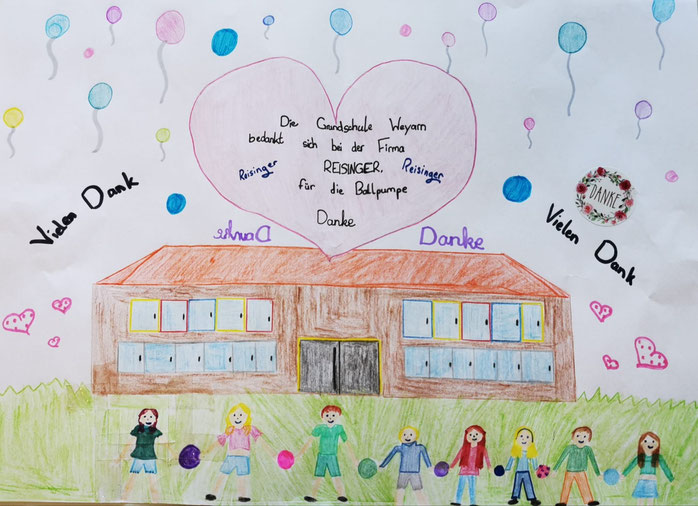 Die Grundschule Weyarn
bedankt sich bei der Firma
Reisinger REISINGER, Reisinger
für die Ballpumpe
Danke
Vielen Dank
DANKE
Vielen Dank
Danke
Danke